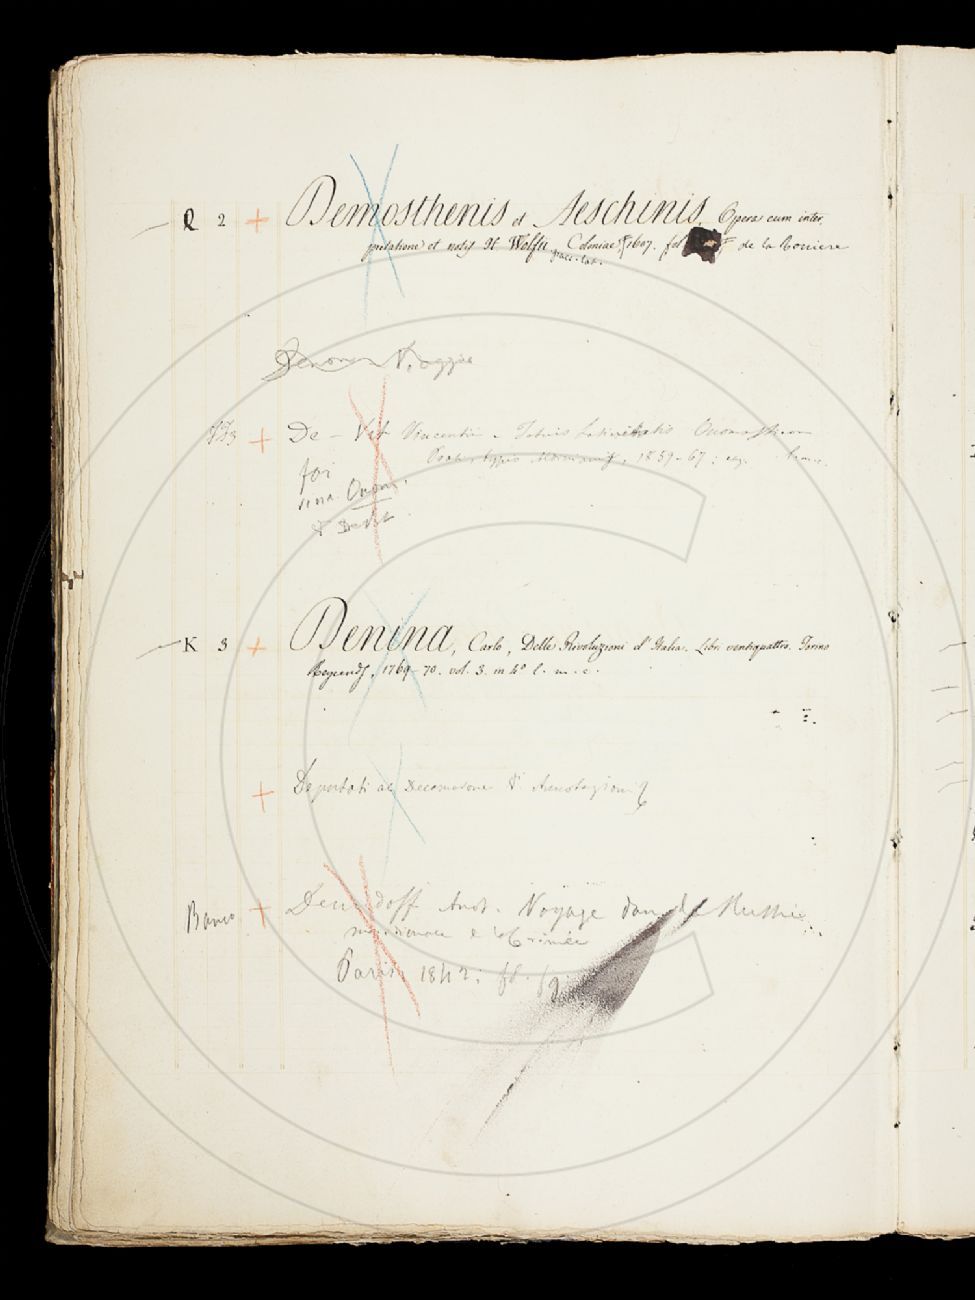 Q 2 + Demosthenis et Aeschinis, Opera cum inter
pretatione et notis H Wolfii Coloniae 1607. fol de la Roviere
graec. lat.
Viaggio
+ De-Vit Vincentii Totius Latinitatis Onomasticon
Prati, typis 1859-67;
foi
Onom.
K 3 + Denina, Carlo, Delle Rivoluzioni d'Italia. Libri ventiquattro. Torino
Reycends, 1769-70. vol. 3. in 4° l. m. c.
+ Deputati al Decamerone Annotazioni
+ Demidoff Anat. Voyage dans la Russie
meridionale e la Crimée
Paris 1842; fol. fig.